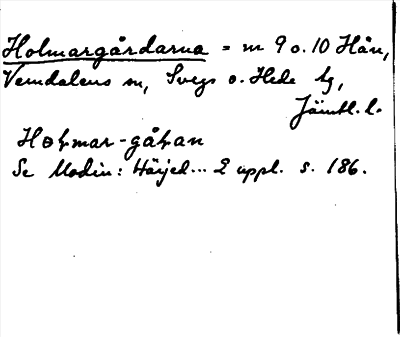 Holmargårdarna = m 9 o. 10 Hån,
Vemdalens sn, Svegs o. Hede tg,
Jämtl. l.
Hoḷmar-gåḷan
Se Modin: Härjed... 2 uppl. s. 186.